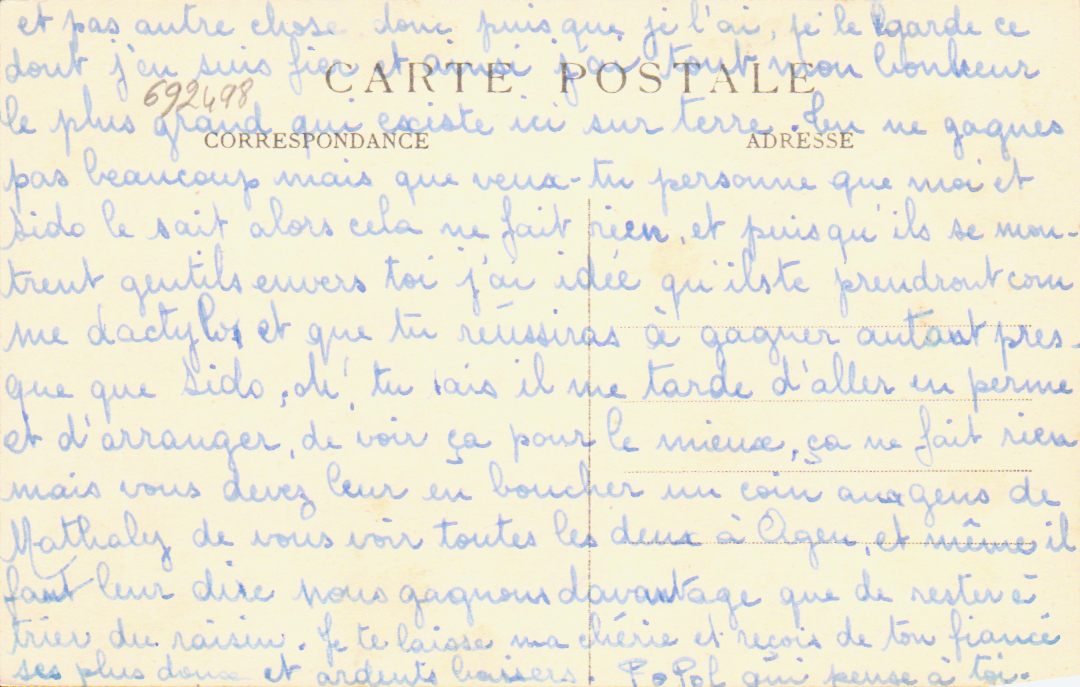 et pas autre chose donc puisque je l'ai, je le garde ce
dont j'en suis fier et ainsi j'ai tout mon bonheur
CARTE POSTALE
692498
le plus grand qui existe ici sur terre. Tu ne gagnes
CORRESPONDANCE ADRESSE
pas beaucoup mais que veux-tu personne que moi et
Sido le sait alors cela ne fait rien, et puisqu'ils se mon-
trent gentils envers toi j'ai idée qu'ils te prendront com
me dactylo, et que tu réussiras à gagner autant pres-
que que Sido, oh! tu sais il me tarde d'aller en perme
et d'arranger, de voir ça pour le mieux, ça ne fait rien
mais vous devez leur en boucher un coin aux gens de
Mathaly de vous voir toutes les deux à Agen, et même il
faut leur dire nous gagnons davantage que de rester à
trier du raisin. Je te laisse ma chérie et reçois de ton fiancé
ses plus doux et ardents baisers. PoPol qui pense à toi.